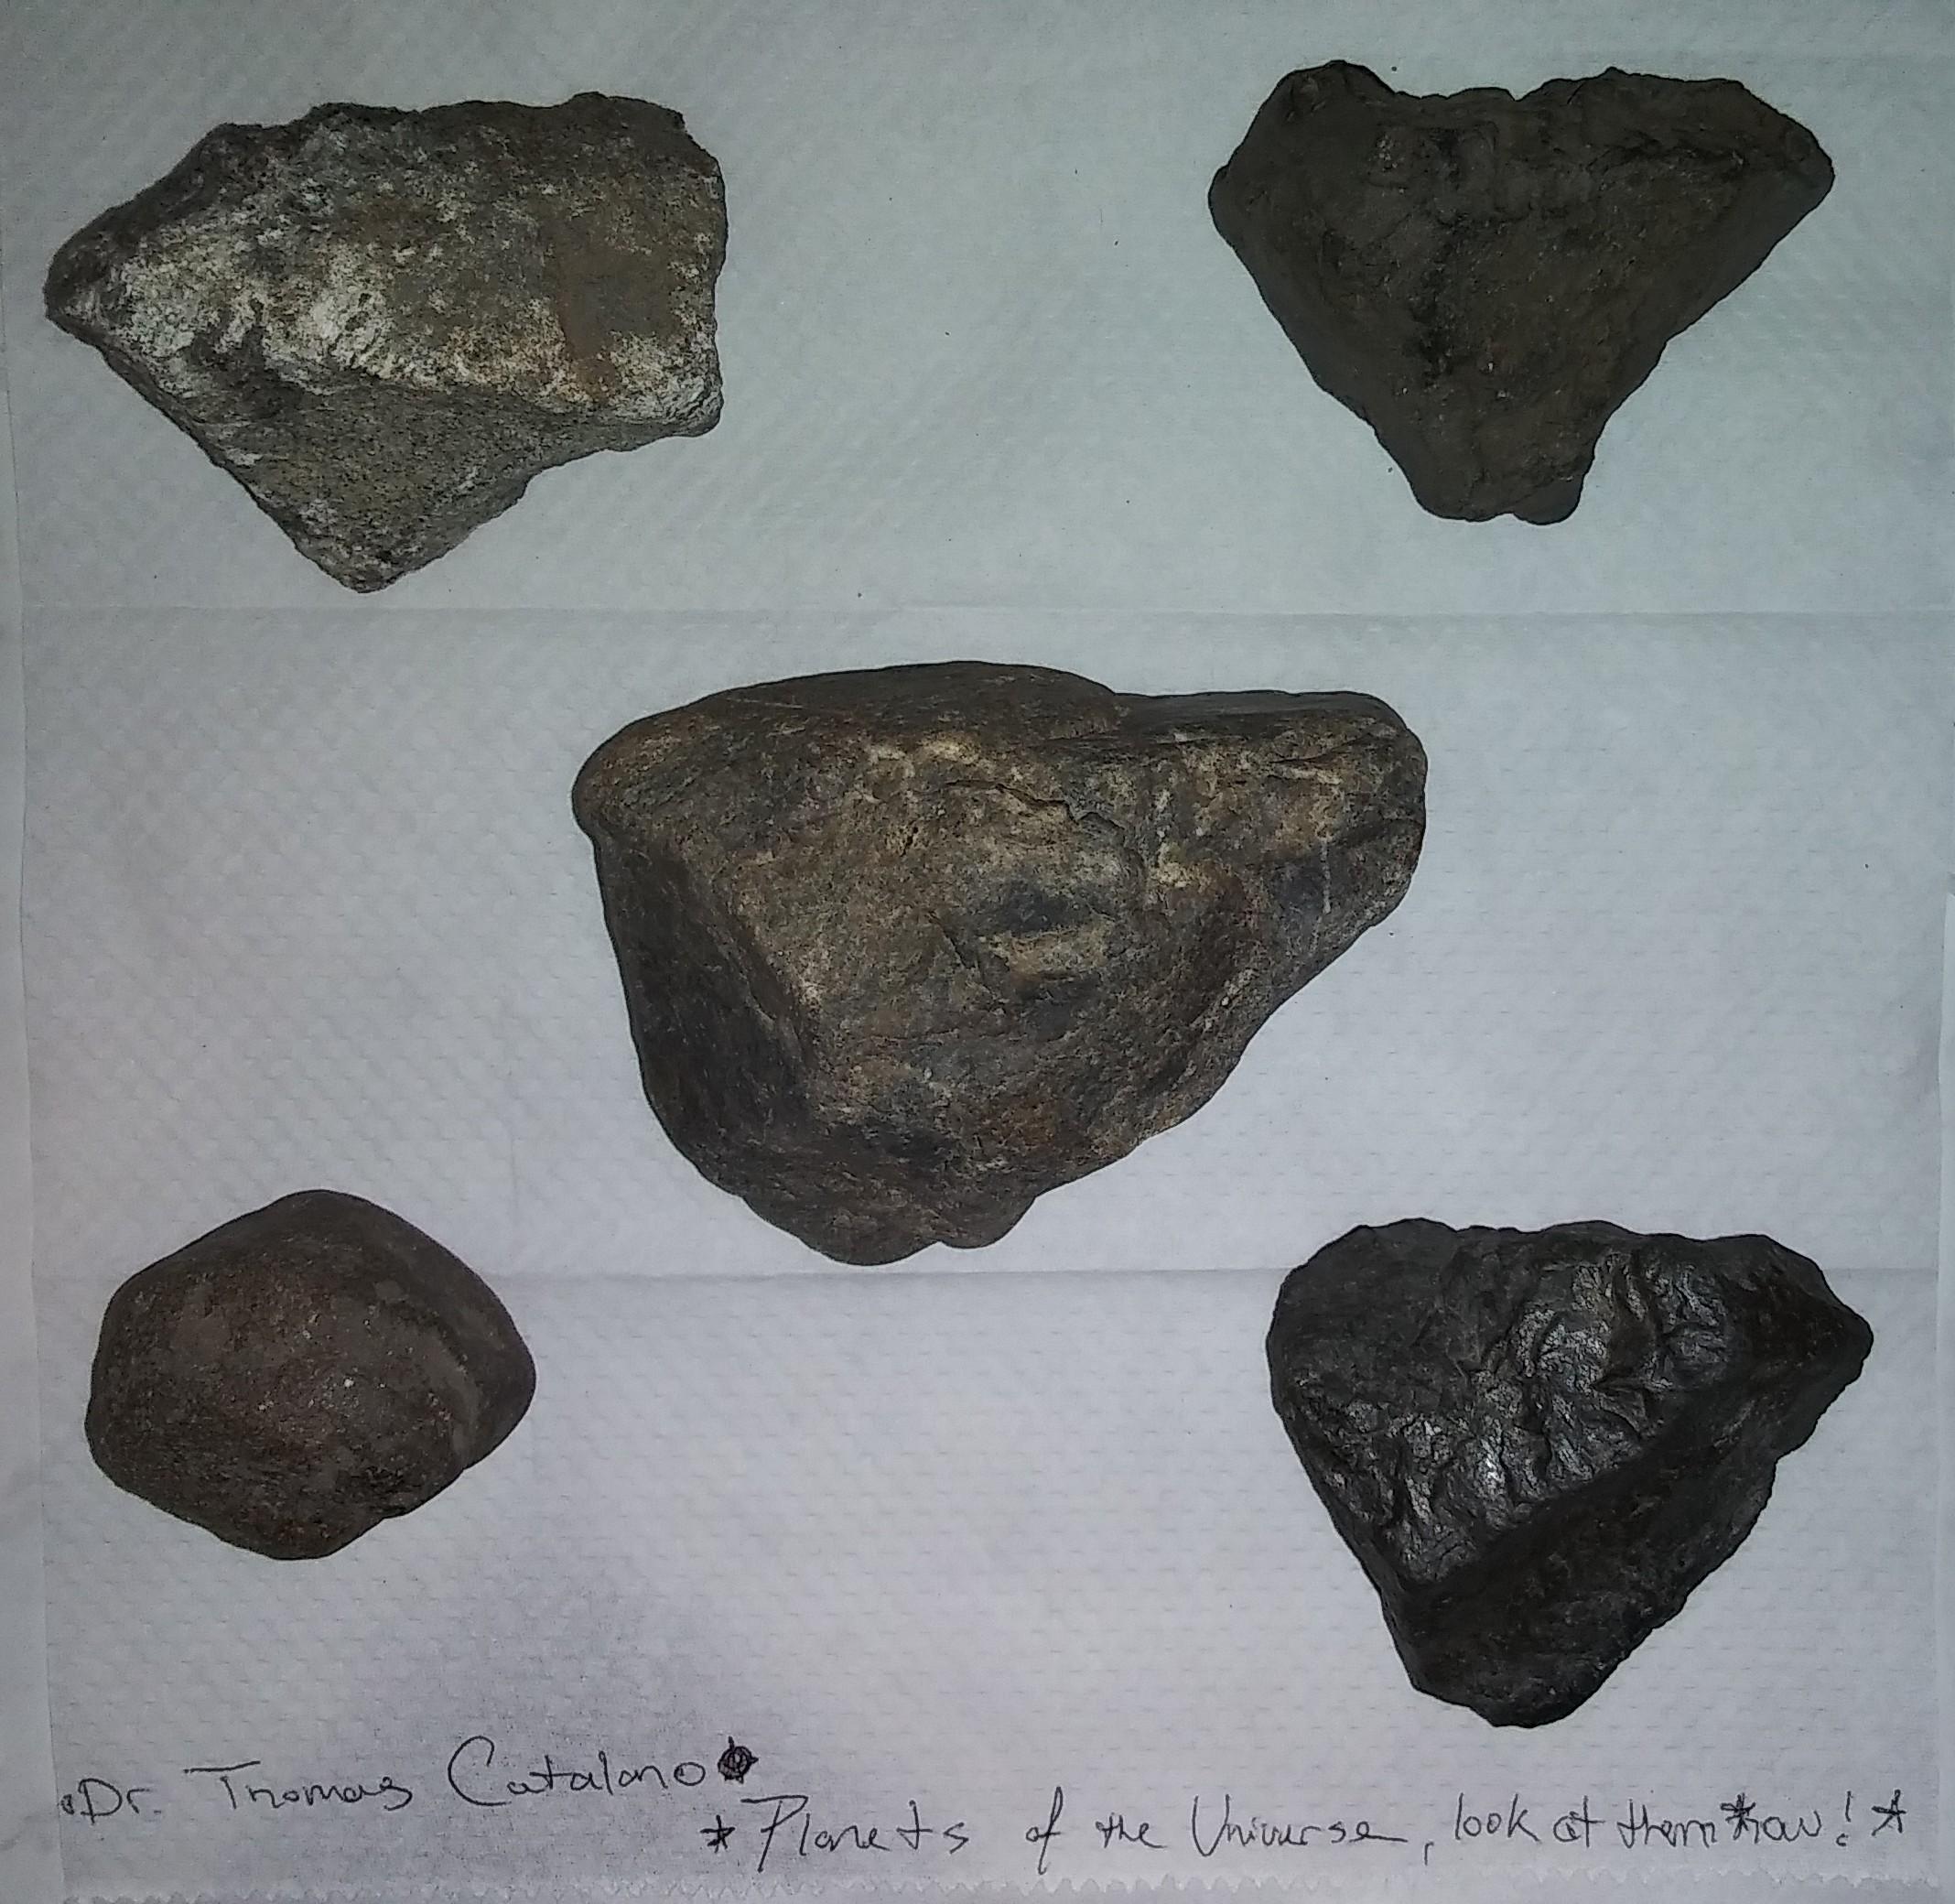 Dr. Thomas Catalano
*Planets of the Universe, look at them*now!*